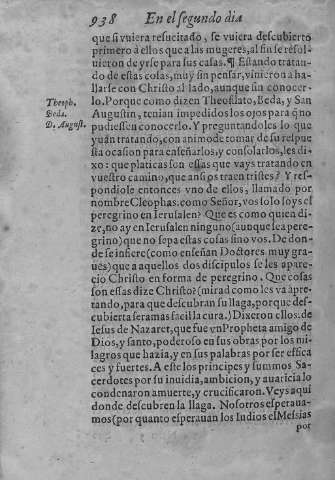 938 En el segundo dia
que si vuiera resucitado, se vuiera descubierto
primero à ellos que a las mugeres, al fin se resol
uieron de yrse para sus casas. ¶ Estando tratan-
do de estas cosas, muy sin pensar, vinieron a ha-
llarse con Christo al lado, aunque sin conocer-
Theoph. lo. Porque como dizen Theofilato, Beda, y San
Beda. Augustin, tenian impedidos los ojos para q̃ no
D. August. pudiessen conocerlo. Y preguntandoles lo que
yuan tratando, con animo de tomar de su respue
sta ocasion para enseñarlos, y consolarlos, les di-
xo: que platicas son essas que vays tratando en
vuestro camino, que ansi os traen tristes? Y res-
pondiole entonces vno de ellos, llamado por
nombre Cleophas. como Señor, vos solo soys el
peregrino en Ierusalen? Que es como quien di-
ze, no ay en Ierusalen ninguno (aunque sea pe-
grino) que no sepa estas cosas sino vos. De don-
de se infiere (como enseñan Doctores muy gra-
ues) que a aquellos dos discipulos se les apare-
cio Christo en forma de peregrino. Que cosas
son essas dize Christo? (mirad como les va apre-
tando, para que descubran su llaga, porque des-
cubierta sera mas facil la cura.) Dixeron ellos. de
Iesus de Nazaret, que fue vn Propheta amigo de
Dios, y santo, poderoso en sus obras por los mi-
lagros que hazia, y en sus palabras por ser effica
ces y fuertes. A este los principes y summos Sa-
cerdotes por su inuidia, ambicion, y auaricia lo
condenaron a muerte, y crucificaron. Veys aqui
donde descubren la llaga. Nosotros esperaua-
mos (por quanto esperauan los Iudios el Messias
por